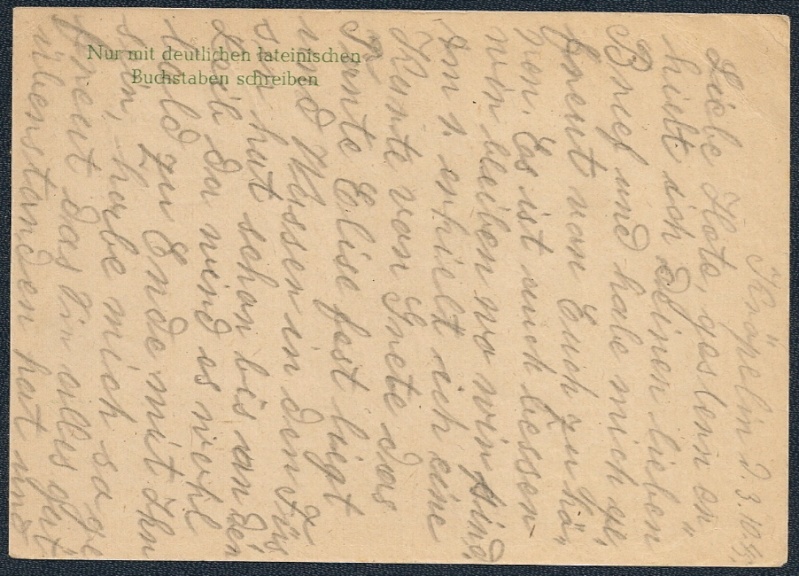 Nur mit deutlichen lateinischen
Buchstaben schreiben
Kröpelin d. 3. 10. 4
Liebe Hote, gestern er„
hielt ich deinen lieben
Brief und habe mich ge„
freut von Euch zu hö„
ren. Es ist auch besser
wir bleiben wo wir sind,
am 1. erhielt ich eine
Karte von Grete das
Tante Elise fest liegt
und Wasser in den Füs
sen hat schon bis an den
Leib da wird es wohl
bald zu Ende mit ihr
sein, habe mich so ge
freut das Ein alles gut
überstanden hat und